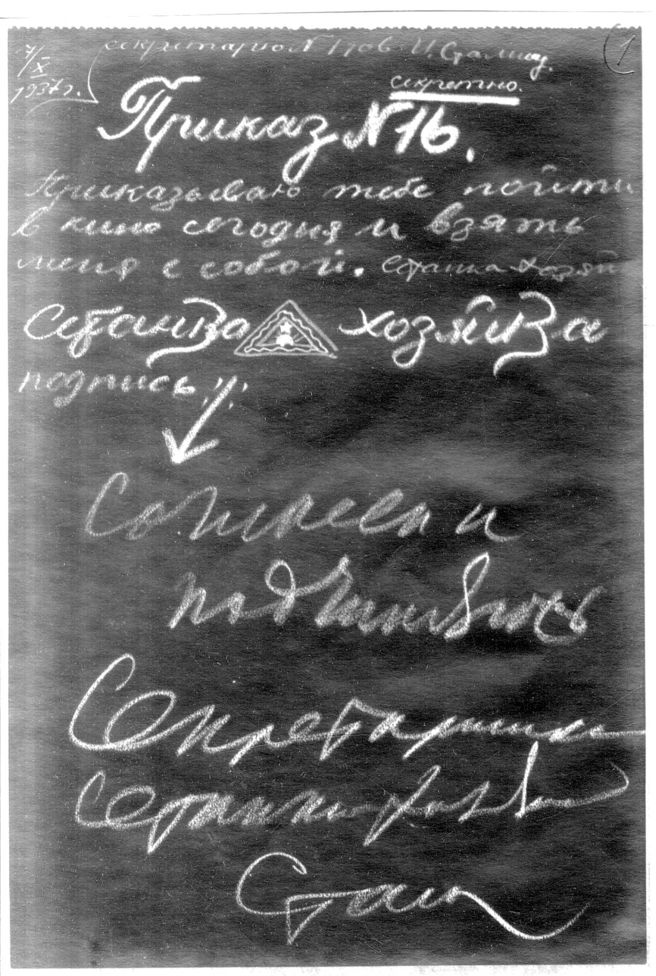 7/X
1937 г.
секретарю N 1 тов. И. Сталину.
1
секретно.
Приказ N 16.
Приказываю тебе пойти
в кино сегодня и взять
меня с собой. Сетанка хозяй
Сетанка хозяйка
подпись
и
подчиняюсь
Секретаришка
Сетанки-хозяйки
Стали